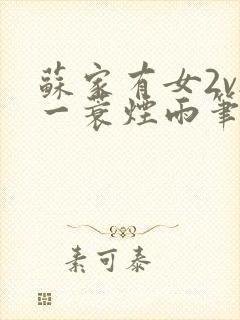 蘇家有女2v
一蓑煙雨筆
素可泰